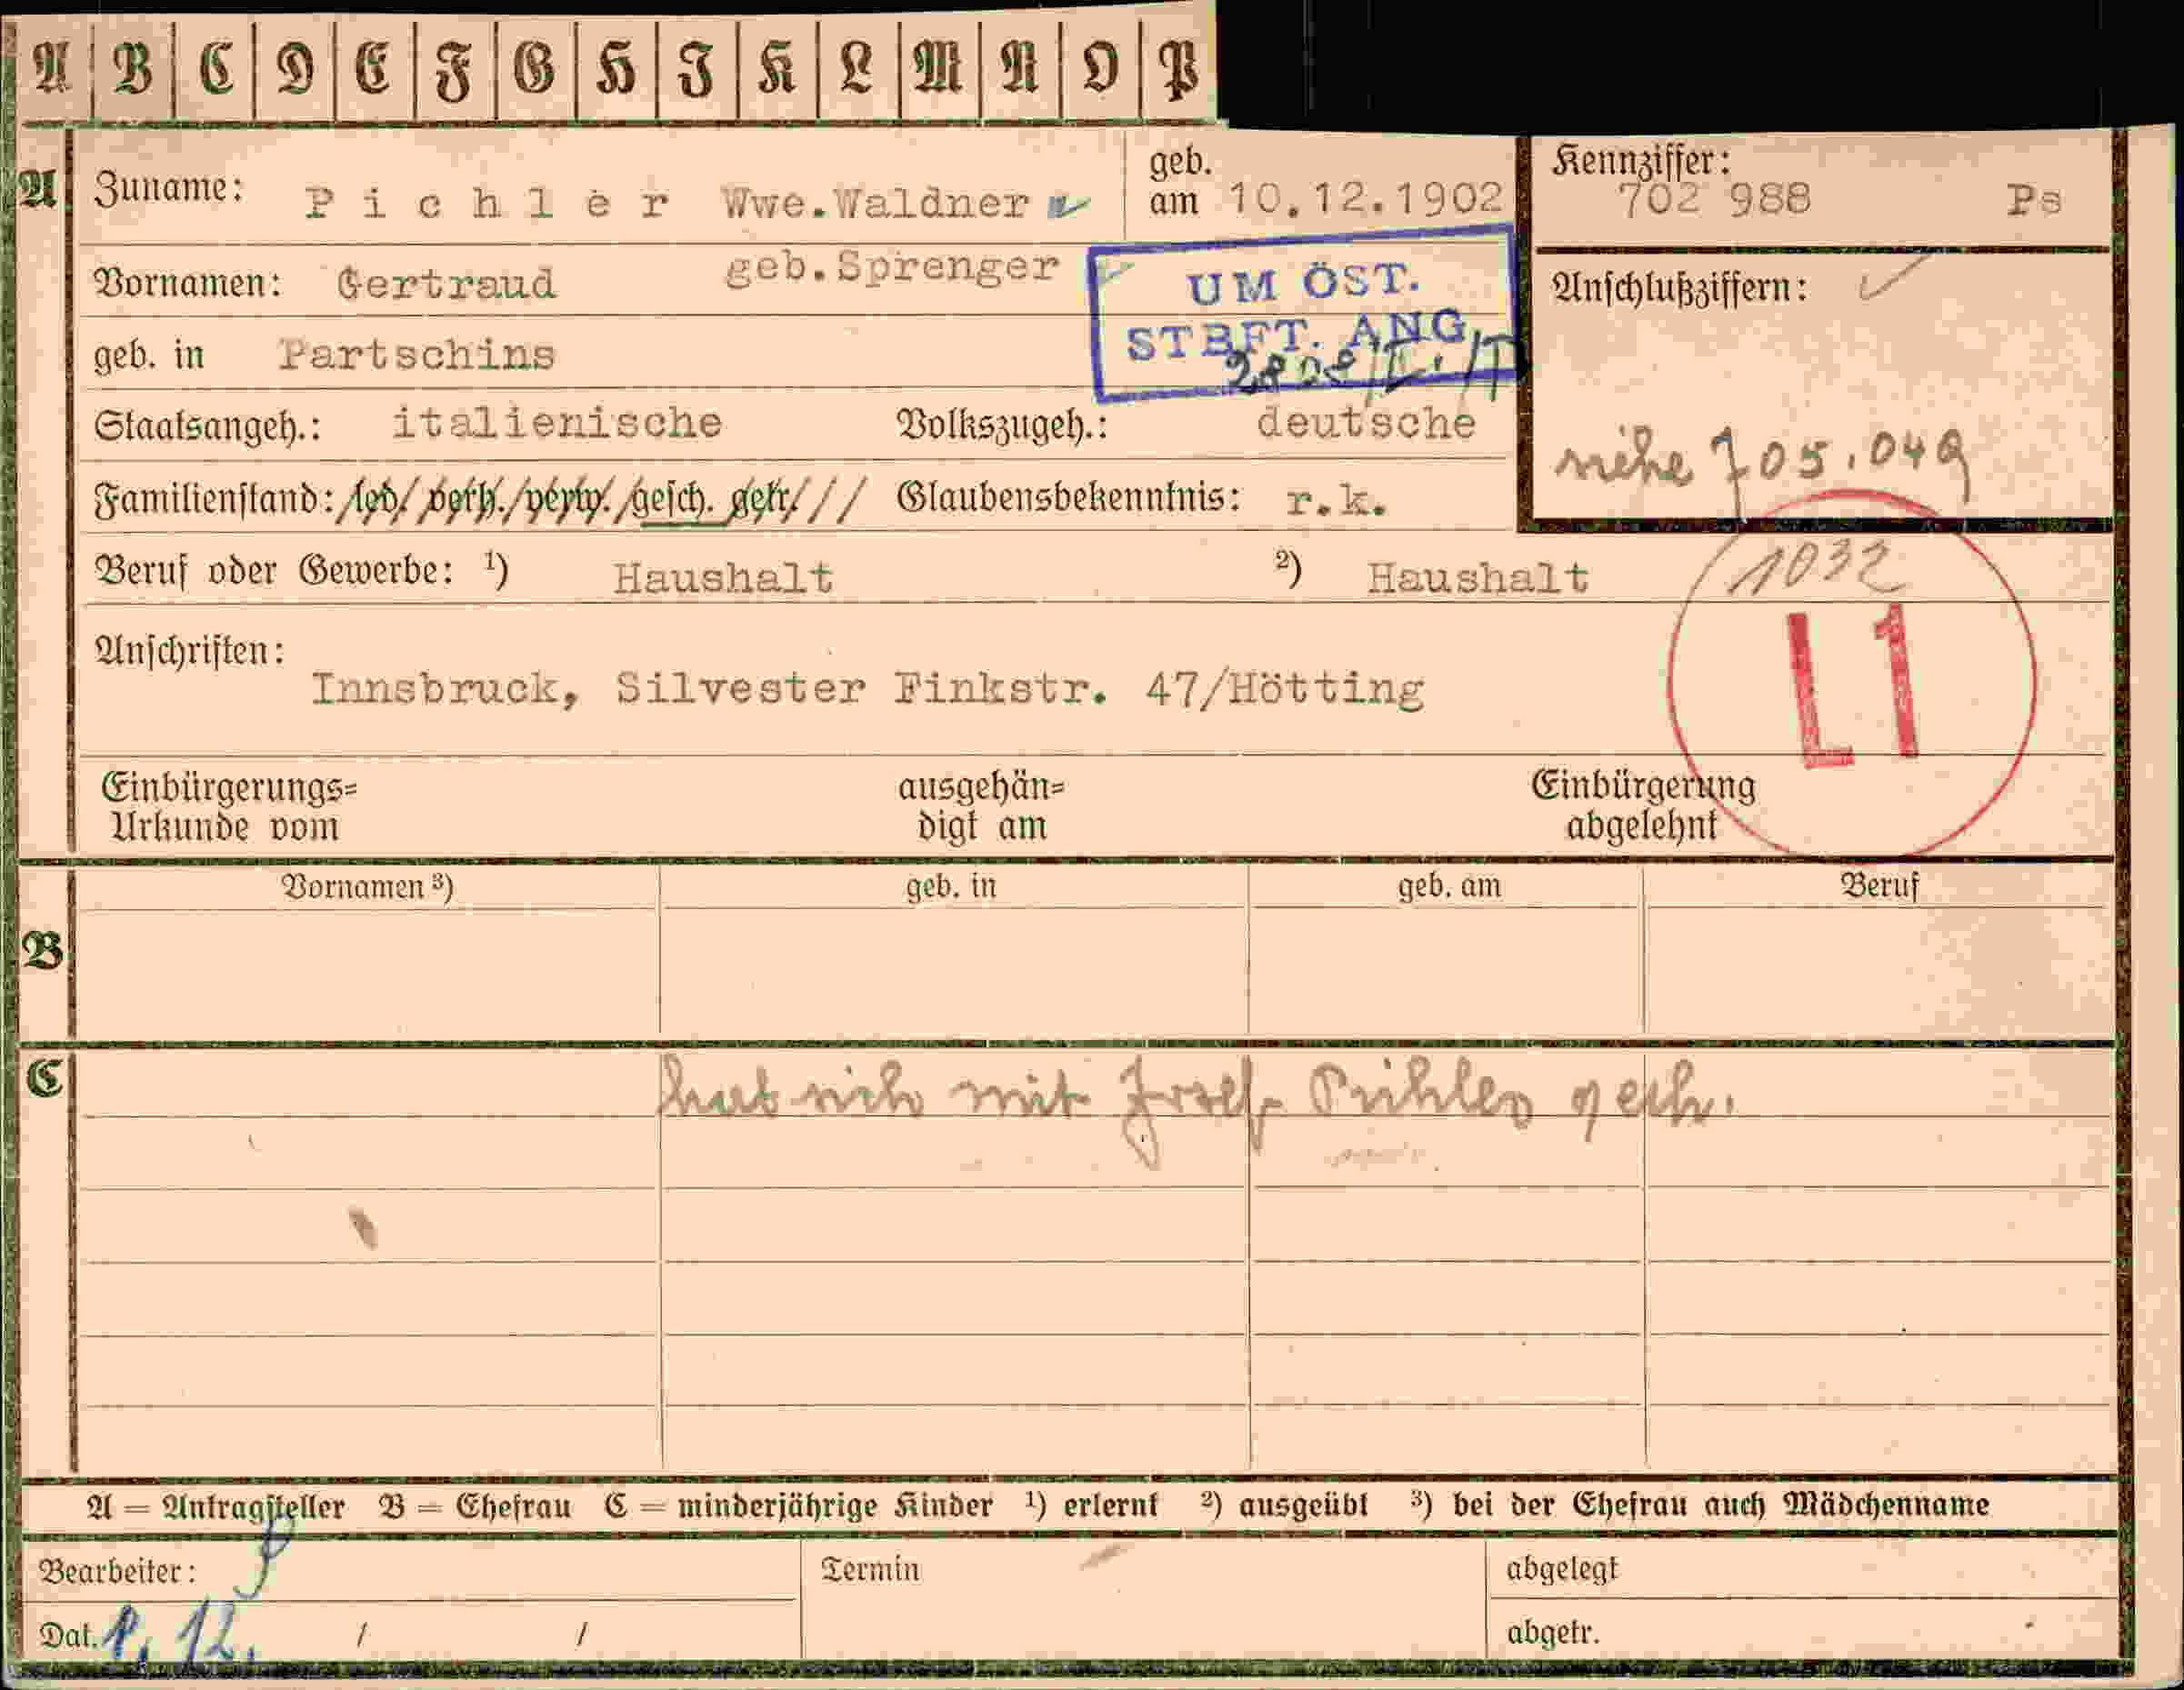 A B C D E F G H J K L M N O P
A Zuname: Pichler Wwe.Waldner geb. am 10.12.1902 Kennziffer: 702 988 Ps
Vornamen: Gertraud geb.Sprenger Anschlußziffern:
UM ÖST.
STBFT. ANG.
geb. in Partschins
Staatsangeh.: italienische Volkszugeh.: deutsche
siehe 705.049
Familienstand: led/ verh./verw./gesch. getr./// Glaubensbekenntnis: r.k.
1032
Beruf oder Gewerbe: ¹) Haushalt ²) Haushalt
L1
Anschriften:
Innsbruck, Silvester Finkstr. 47/Hötting
Einbürgerungs= ausgehän= Einbürgerung
Urkunde vom digt am abgelehnt
Vornamen ³) geb. in geb. am Beruf
B
C hat sich mit Josef Pichler gesch.
A = Antragsteller B = Ehefrau C = minderjährige Kinder ¹) erlernt ²) ausgeübt ³) bei der Ehefrau auch Mädchenname
Bearbeiter: Termin abgelegt
Dat. 12. / / abgetr.